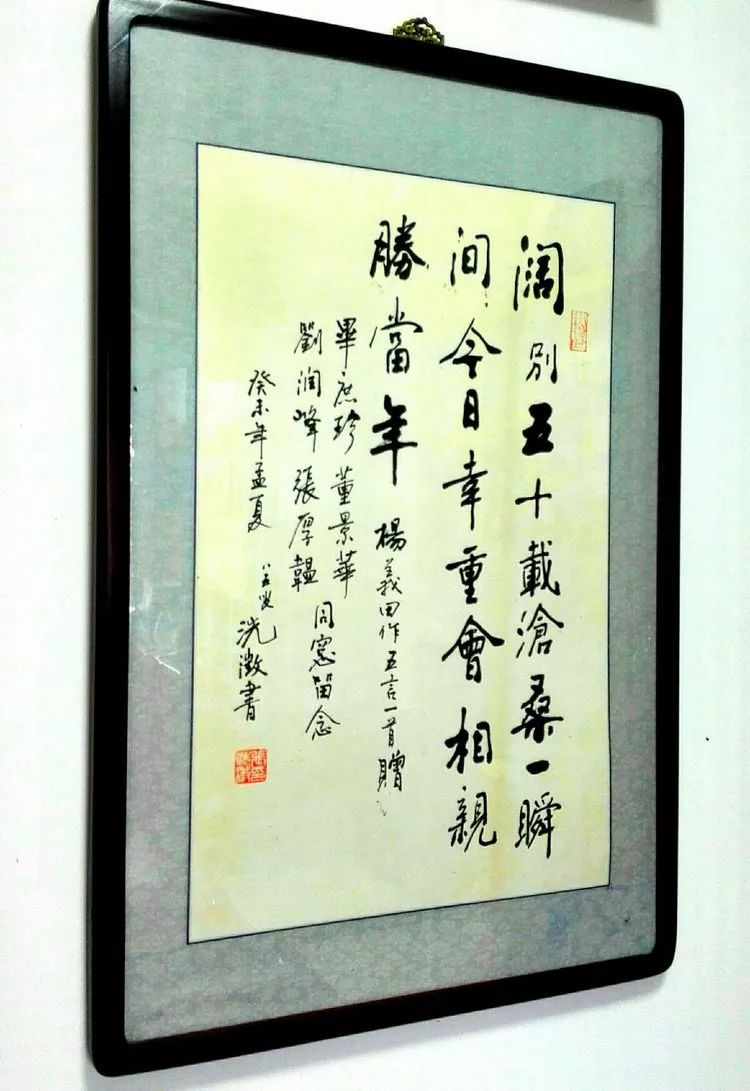 阔别五十載滄桑一瞬
间今日幸重會相親
勝當年
楊義田作五言一首贈
畢庶珍 董景華
劉润峰 張厚韞 同窓留念
癸未年孟夏
洗澂書